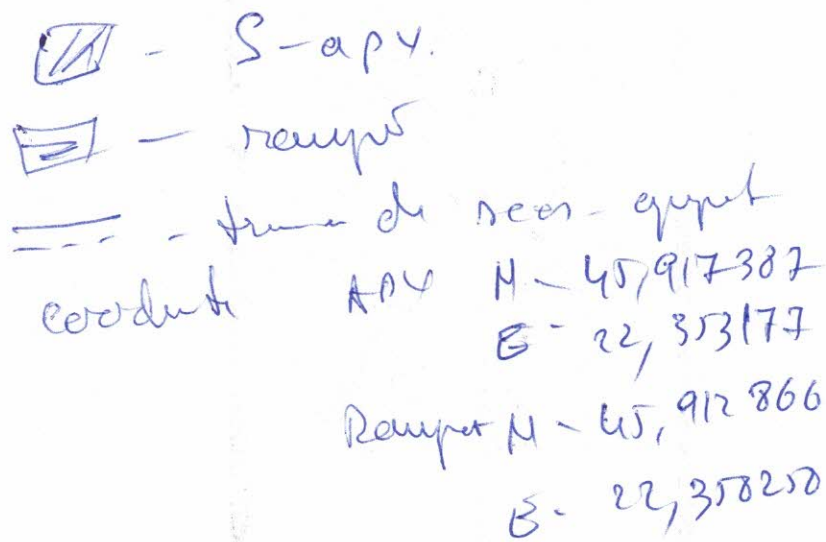 - S-apv.
- rampă
- drum de scos-apropiat
coordonate APV N - 45,917387
E - 22,353177
Rampa N - 45,912866
E - 22,350250